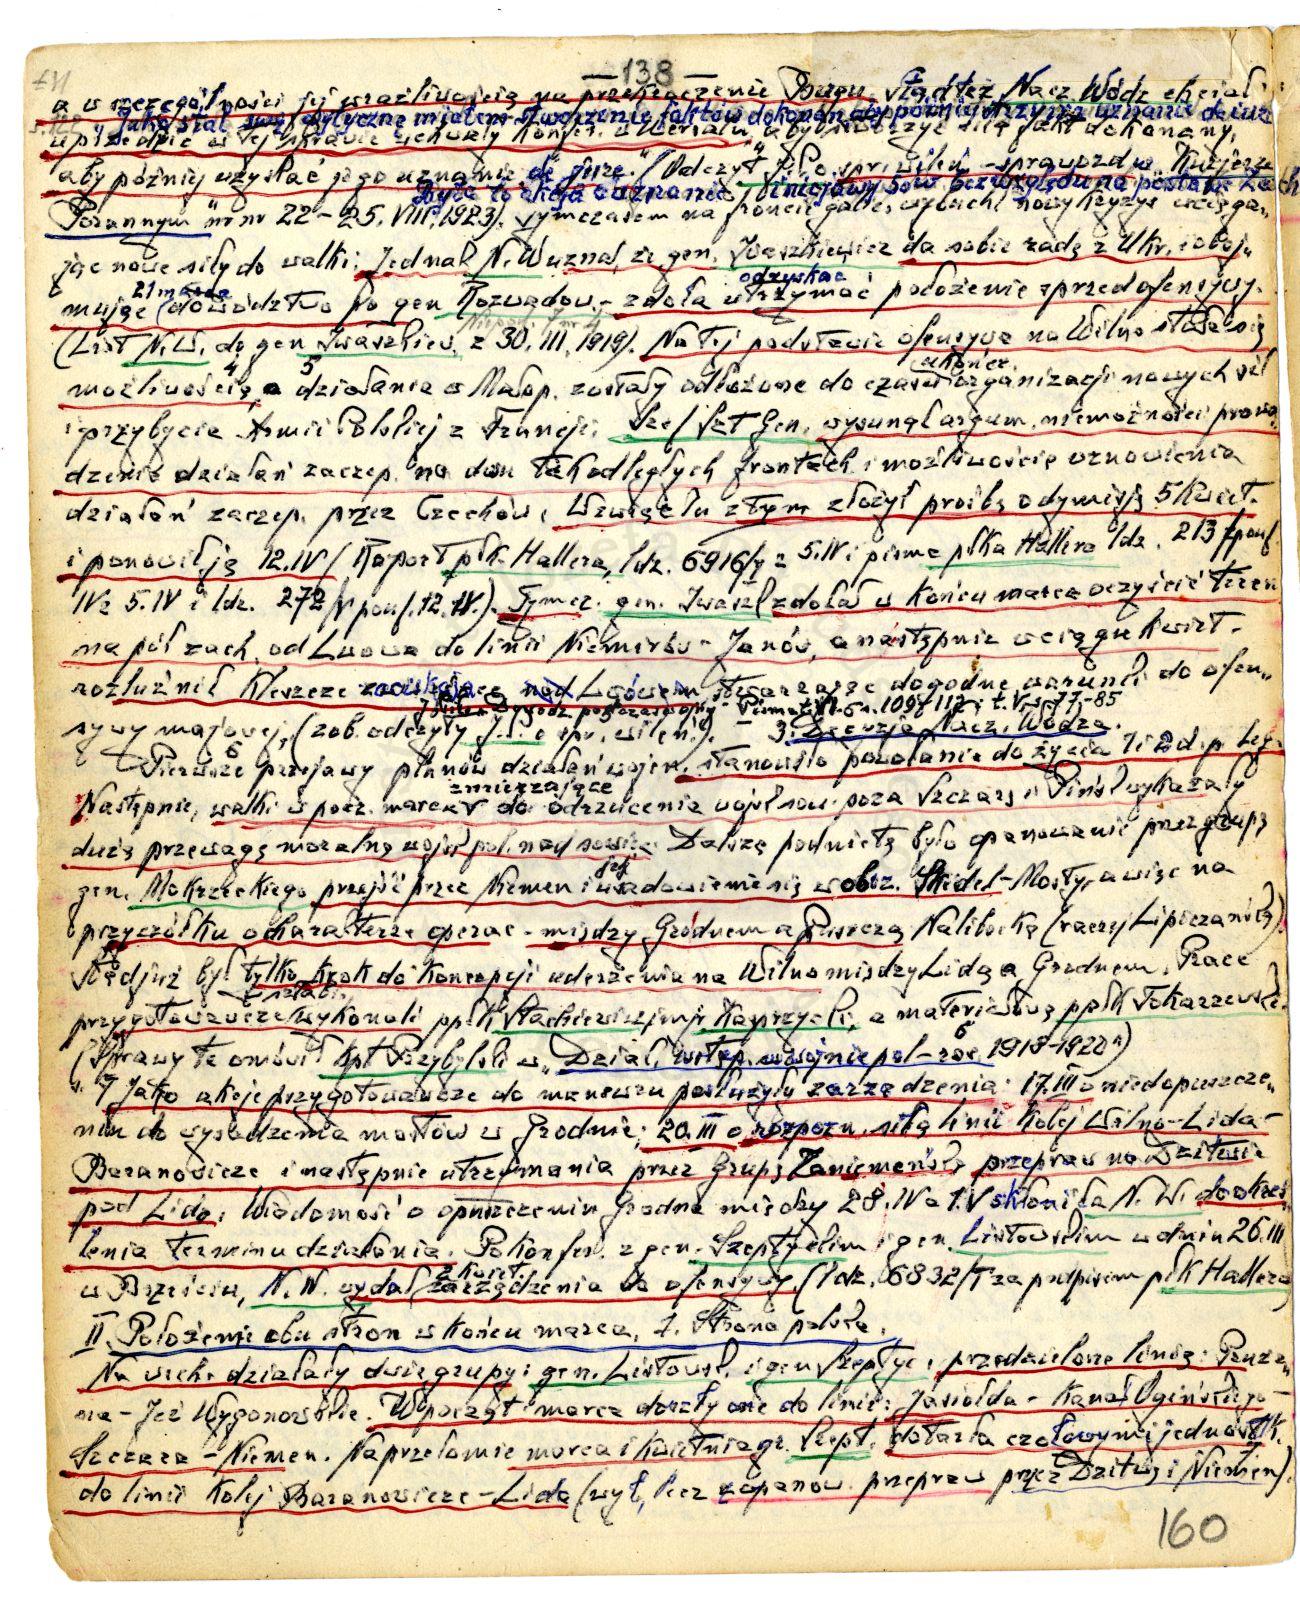 — 138 —
a w szczególności jej wrażliwością na przekroczenie Bugu. Stąd też Nacz. Wódz chciał
, Jako stał swą wytyczną miałem stworzenie faktów dokonan. aby później otrzymać uznanie de iure
uprzedzić w tej sprawie uchwały Konfer. w Wersalu, aby stworzyć siłą fakt dokonany,
aby później uzyskać jego uznanie „de jure." (Odczyt J. P. o spr. wileń. - sprawozd w Kurjerze
Była to akcja inicjatywy bez względu na postawę Zach
Porannym" nr nr 22-25. VIII. 1923). Tymczasem na froncie galic. wybuchł nowy kryzys wciąga„
jąc nowe siły do walki. Jednak N. W. uznał, że gen. Iwaszkiewicz da sobie radę z Ukr. i obej„
21 marca odzyskać
mując dowództwo po gen Rozwadow. - zdoła utrzymać położenie sprzed ofensywy.
Niepod. 7 nr 4
(List N. W. do gen Iwaszkiew. z 30. III. 1919). Na tej podstawie ofensywa na Wilno stała się
ukończ.
możliwością, a działania w Małop. zostały odłożone do czasu organizacji nowych sił
i przybycia Armii Polskiej z Francji. Szef Szt Gen. wysunął argum. niemożności prowa
dzenia działań zaczep. na dwu tak odległych frontach i możliwością wznowienia
działań zaczep. przez Czechów. W związku z tym złożył prośbę o dymisję 5 kwiet.
i ponowił ją 12. IV (Raport płk. Hallera, ldz. 6916/ z 5. IV i pismo płka Hallera ldz. 213 /pouf.
IV z 5. IV i ldz. 272/ pouf. 12. IV.). Tymcz. gen. Iwaszk zdołał w końcu marca oczyścić teren
na płd zach. od Lwowa do linii Niemirów - Janów, a następnie w ciągu kwiet.
rozluźnił kleszcze nad Lwowem, stwarzając dogodne warunki do ofen„
Pisma t. V. s. 77-85
sywy majowej, (zob. odczyty J. P. o spr. wileń.). 3. Decyzja Nacz. Wodza.
Pierwsze przejawy planów działań wojen. stanowiło powołanie do życia 1 i 2 d. p. Leg.
zmierzające
Następnie, walki w pocz. marca do odrzucenia wojsk sow. poza Szczarę i Pińsk wykazały
dużą przewagę moralną wojsk pol. nad sowiec. Dalszą podnietą było opanowanie przez grupę
gen. Mokrzeckiego przejść przez Niemen i usadowienie się w obsz. Skidel-Mosty, a więc na
przyczółku o charakterze operac - między Grodnem a Puszczą Nalibocką (raczej Lipiczańską)
Stąd już był tylko krok do koncepcji uderzenia na Wilno między Lidą a Grodnem. Prace
przygotowawcze wykonali ppłk Stachiewicz, mjr Kasprzycki, a materiałową ppłk Tokarzewski.
(Sprawy te omówił kpt Przybylski w „Dział. wstęp. w wojnie pol-ros 1918-1920")
Jako akcje przygotowawcze do manewru posłużyły zarządzenia: 17. III o niedopuszcze„
niu do wysadzenia mostów w Grodnie; 20. III o rozpozn. siłą linii kolej Wilno-Lida-
Baranowicze, i następnie utrzymania przez Grupę Zaniemeńską przepraw na Dzitwie
pod Lidą. Wiadomość o opuszczeniu Grodna między 28. IV a 1. V skłoniła N. W. do okreś„
lenia terminu działania. Po konfer. z gen. Szeptyckim i gen. Listowskim w dniu 26. III
w Brześciu, N. W. wydał zarządzenia do ofensywy. (ldz. 6832/I za podpisem płk Hallera)
II Położenie obu stron w końcu marca. 1. Strona polska.
Na wsch. działały dwie grupy: gen. Listowsk. i gen Szeptyc., przedzielone linią: Pruża„
na - Jez Wygonowskie. W począt. marca doszły one do linii: Jasiołda - Kanał Ogińskiego -
Szczara - Niemen. Na przełomie marca i kwietnia gr. Szept. dotarła czołowymi jednostk.
do linii kolej Baranowicze - Lida (wył, lecz zapanow. przepraw przez Dzitwę i Niemen).
160